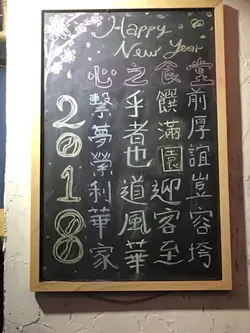 Happy
New Year
堂前厚誼豈容垮
食饌滿園迎客至
之乎者也道風華
心繫夢榮利華家
2018